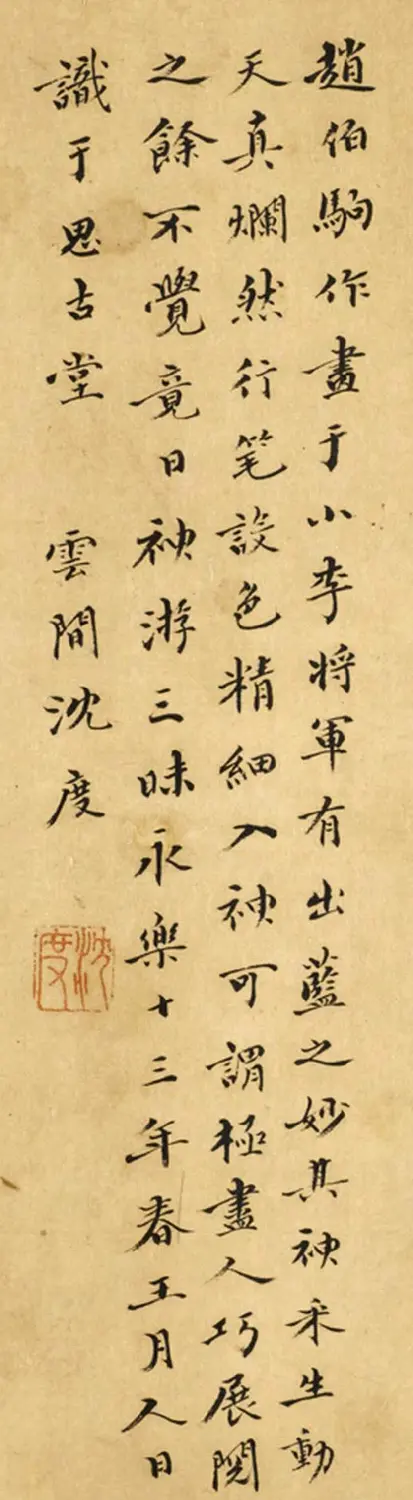 趙伯駒作畫于小李将軍有出藍之妙其神采生動
天真爛然行笔設色精細入神可謂極盡人巧展閱
之餘不覺竟日神游三昧永樂十三年春王月人日
識于思古堂 雲間沈度
沈度